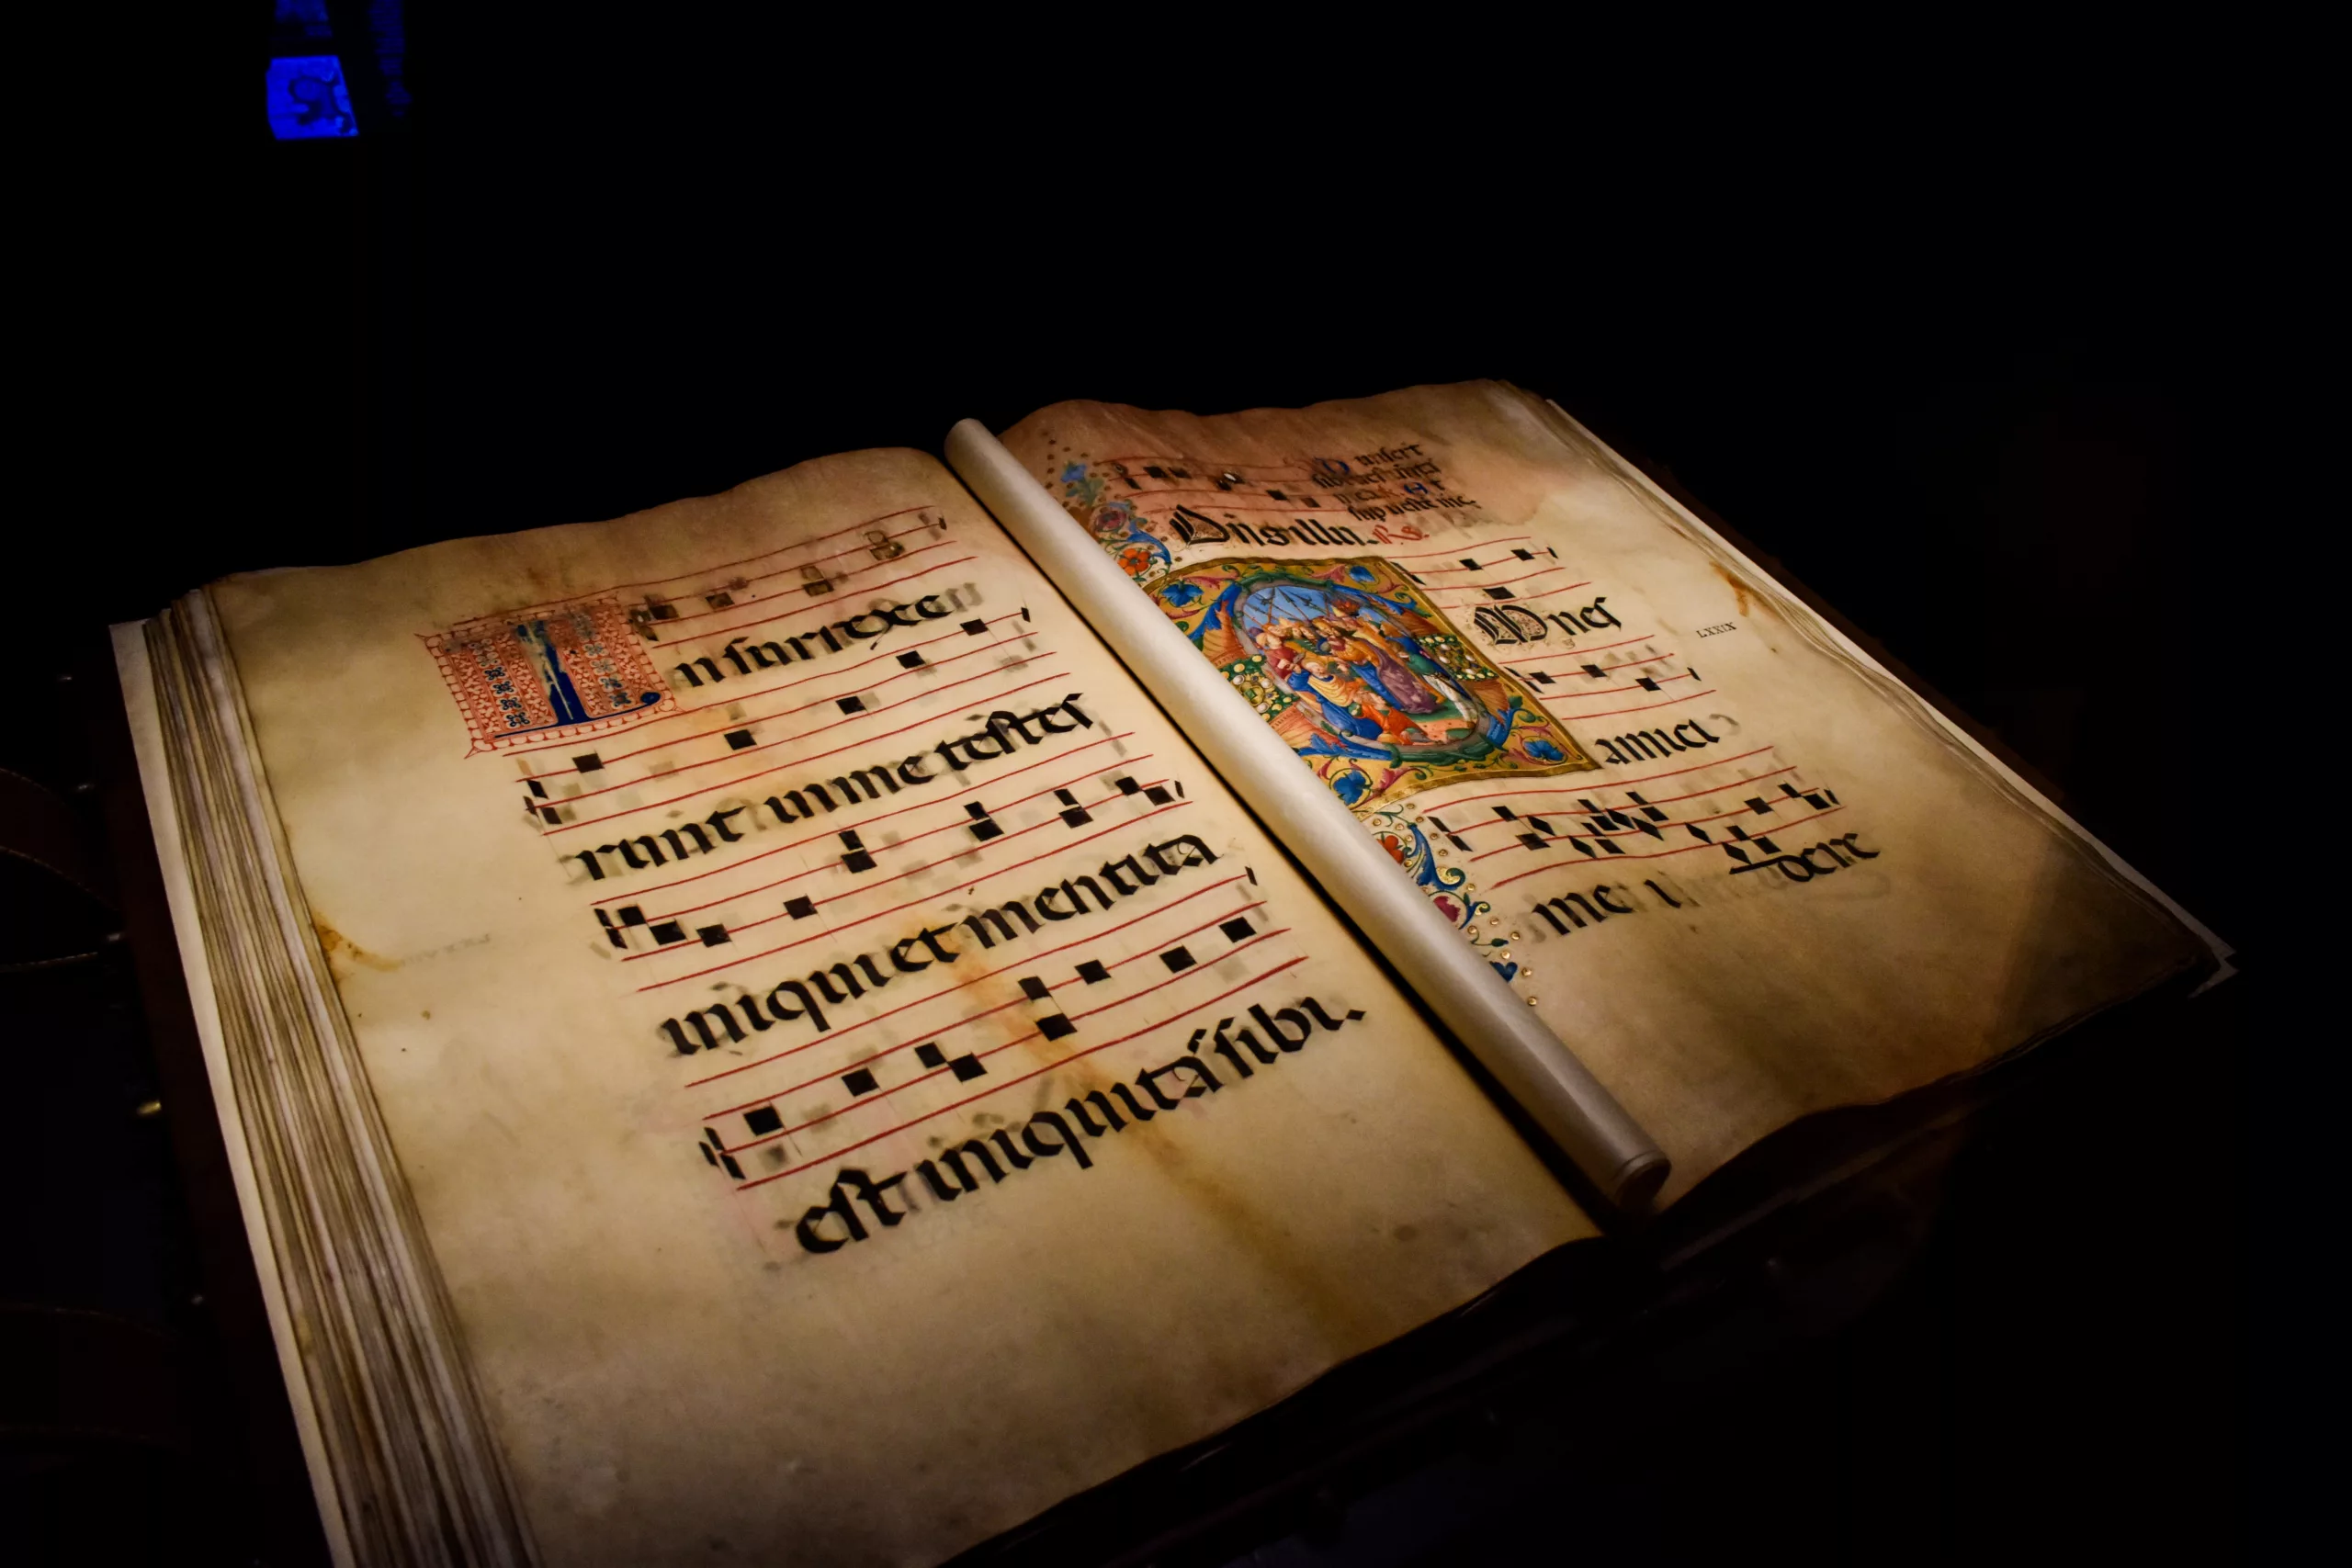 Insurrexe
runt in me testes
iniqui et mentita
est iniquitas sibi.
Dñs illu. Rs.
OMnes
LXXIX
amici
mei dere